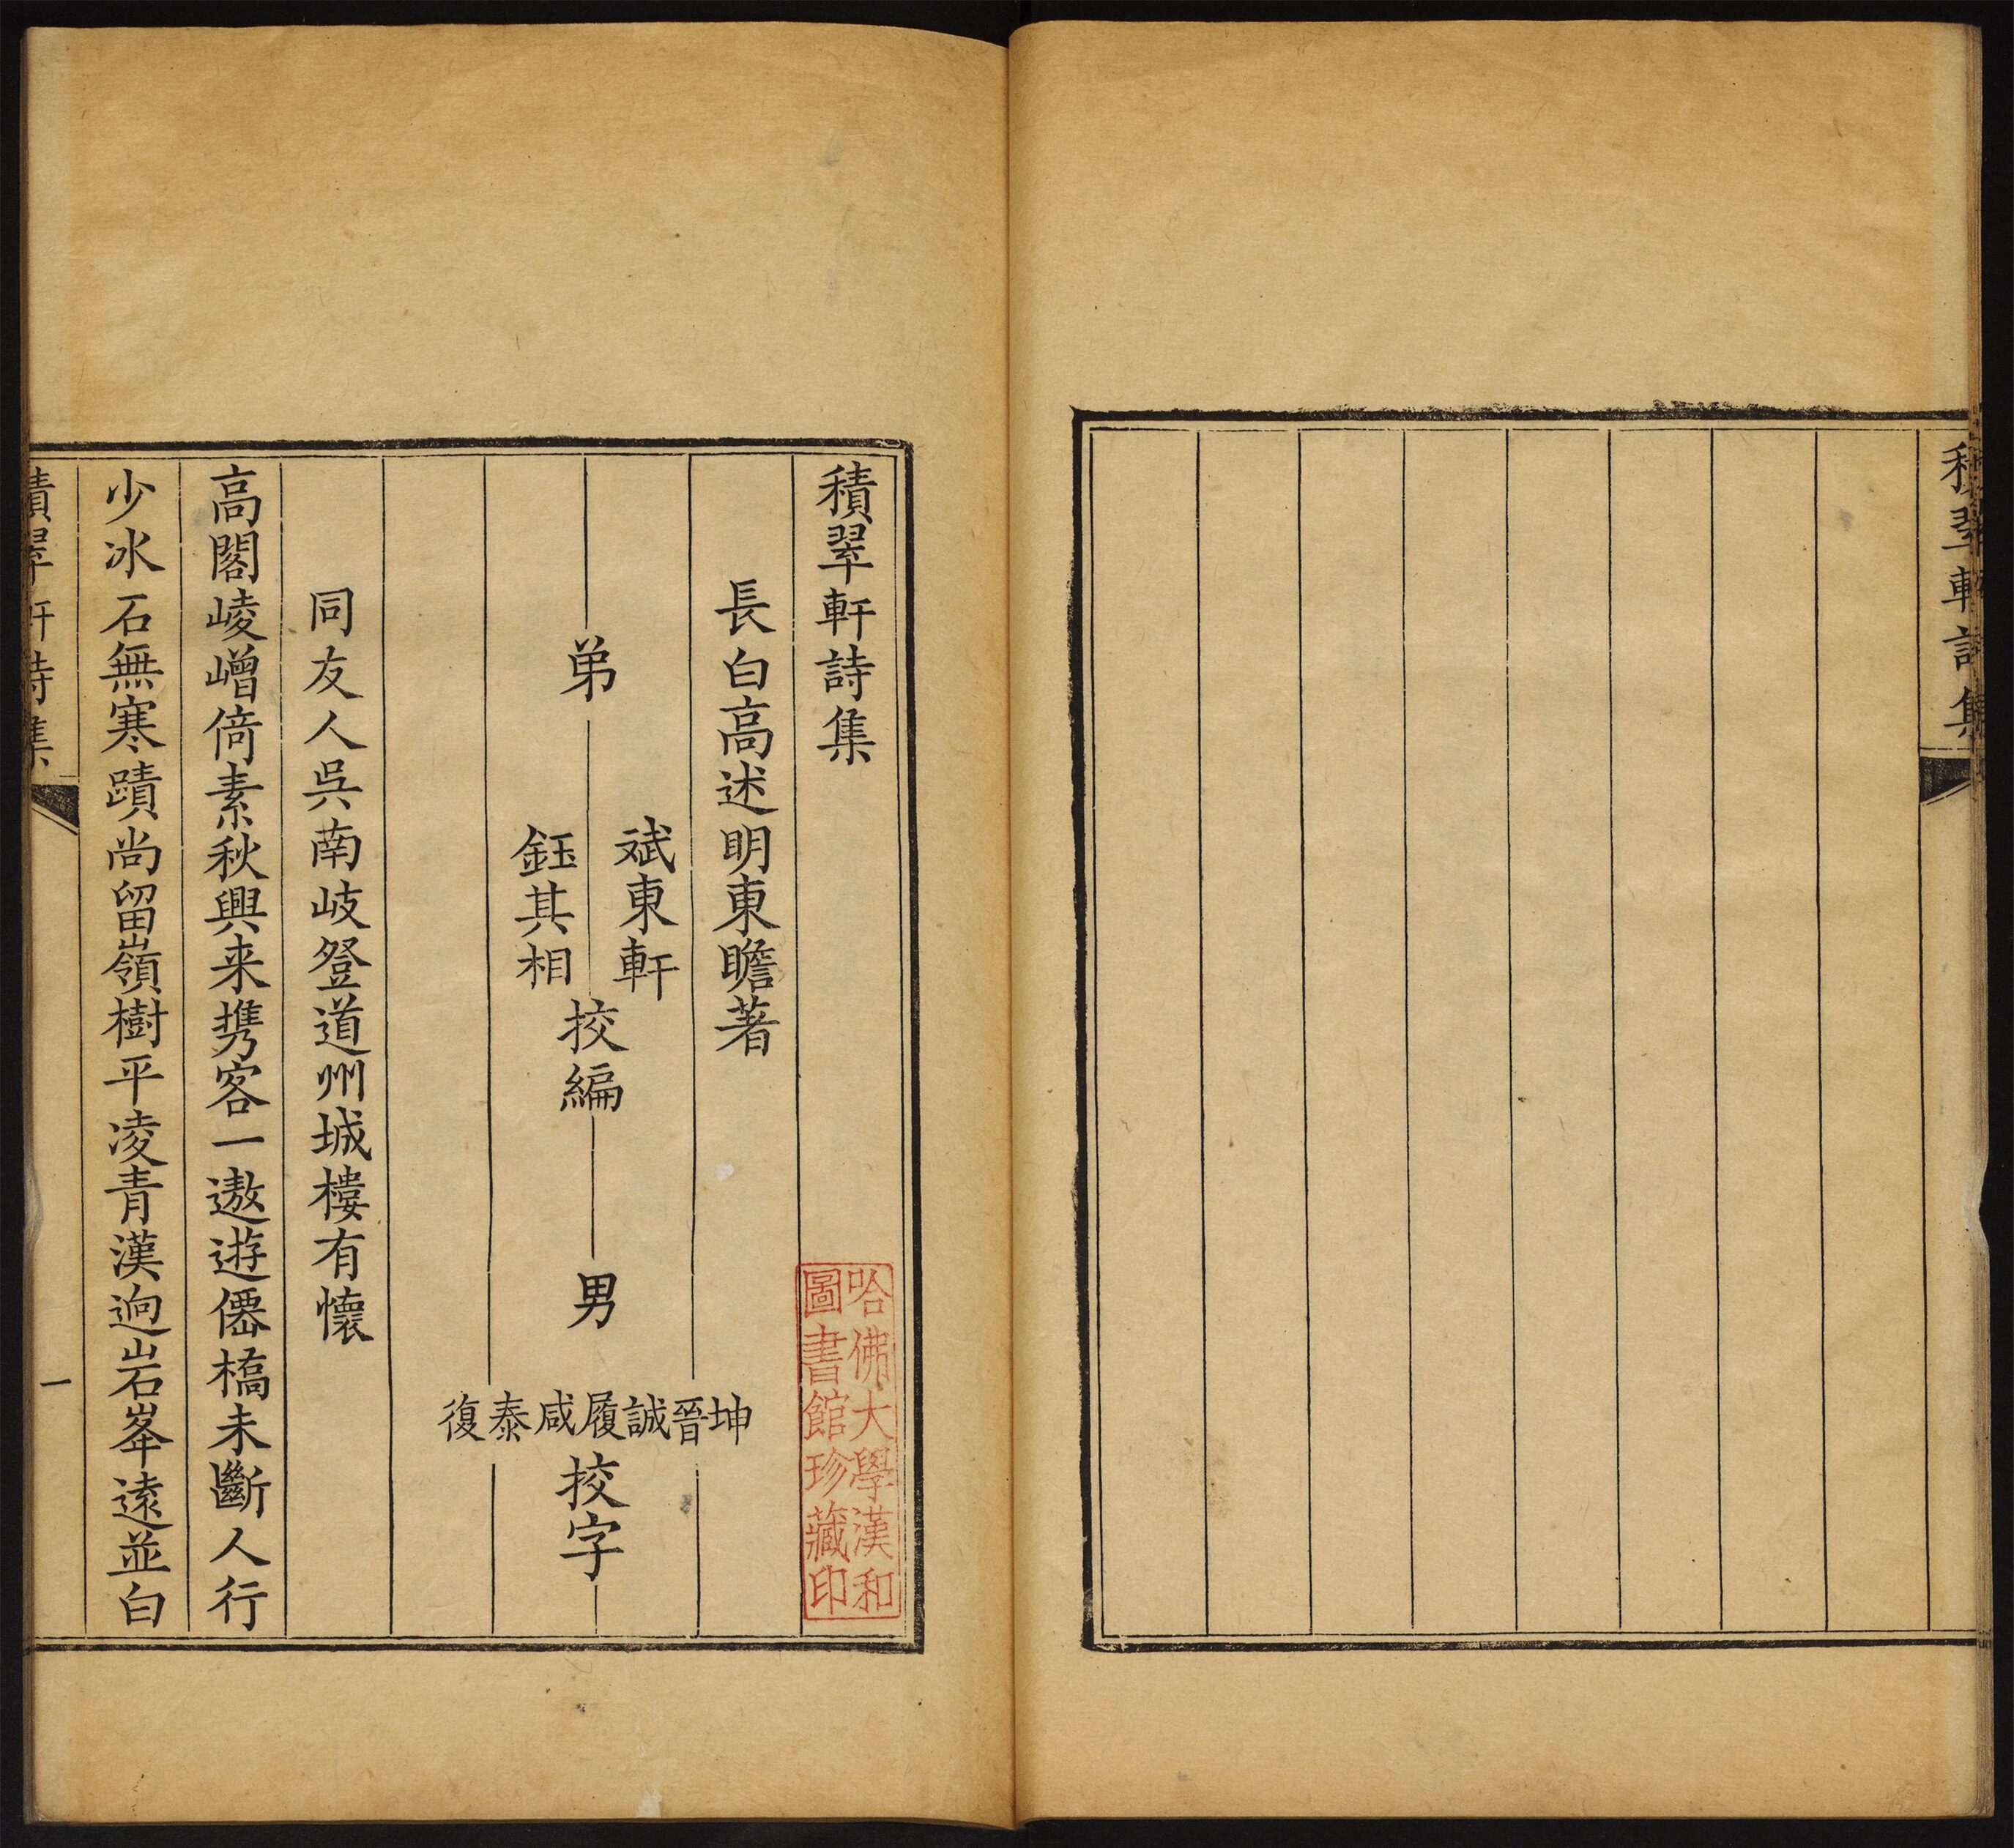 積翠軒詩集
積翠軒詩集
哈佛大學漢和
圖書館珍藏印
長白高述明東瞻著
弟
斌東軒
鈺其相
挍編
男
坤晉誠履咸泰復
挍字
同友人吳南岐登道州城樓有懷
高閣崚嶒倚素秋興来携客一遨遊僊橋未斷人行
少氷石無寒蹟尚留嶺樹平凌青漢逈岩峯遠並白
積翠軒詩集
一